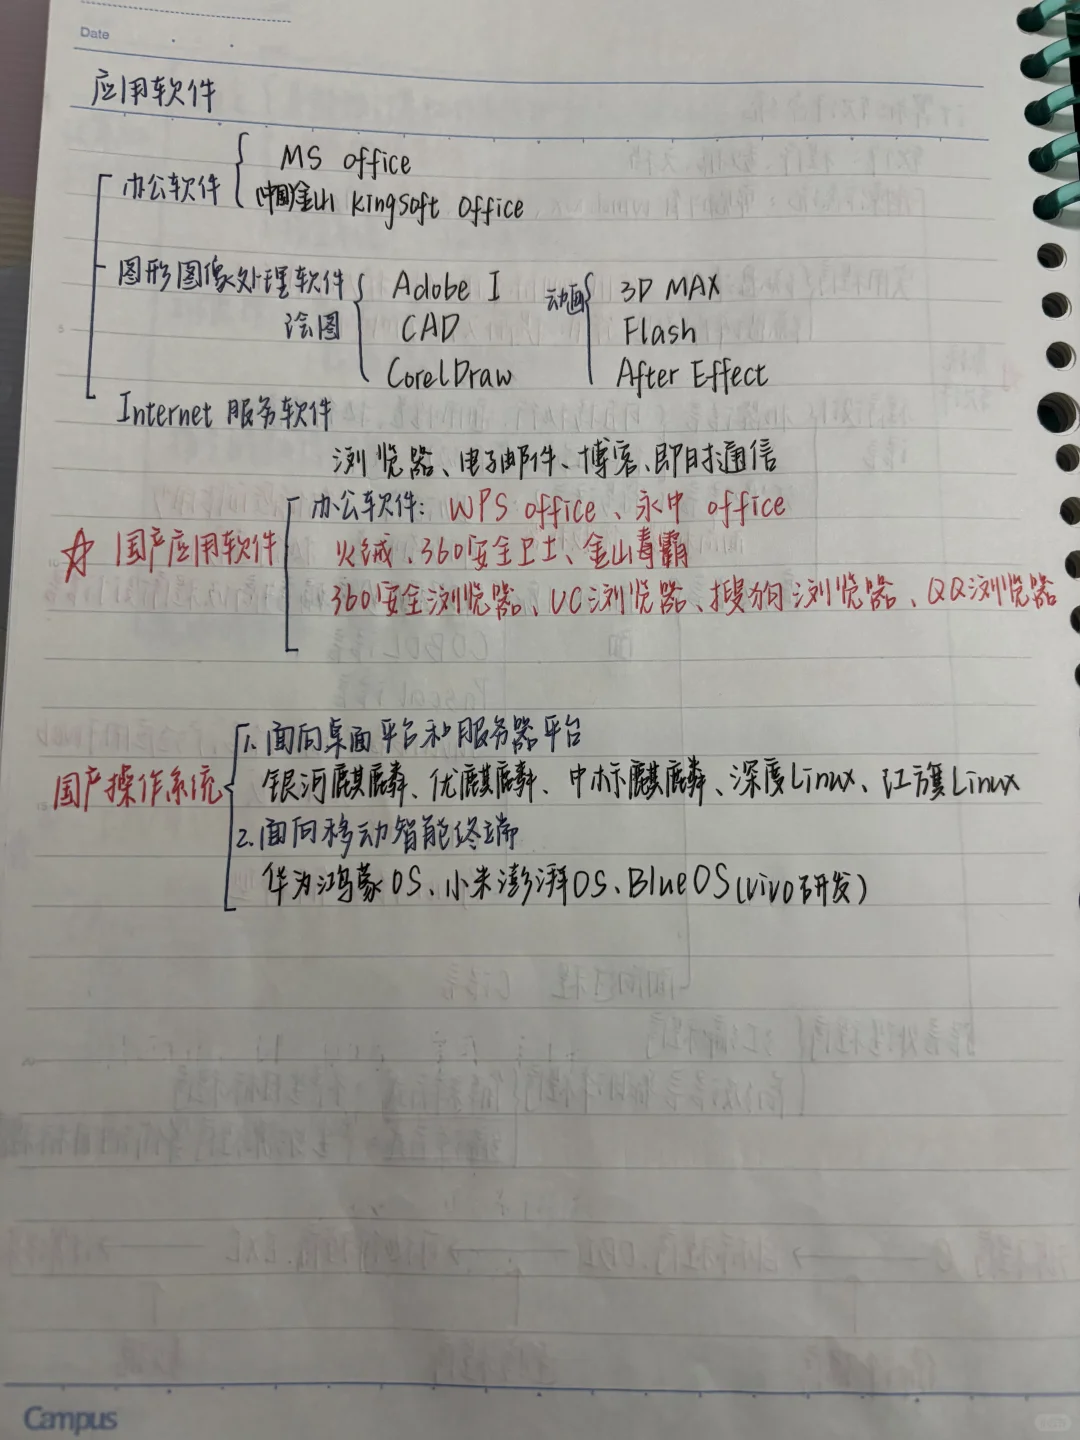 Date
应用软件
办公软件 MS office
(中国)金山 Kingsoft Office
图形图像处理软件
绘图 Adobe I
CAD
CorelDraw
动画 3D MAX
Flash
After Effect
Internet 服务软件
浏览器、电子邮件、博客、即时通信
☆ 国产应用软件
办公软件: WPS office、永中 office
火绒、360安全卫士、金山毒霸
360安全浏览器、UC浏览器、搜狗浏览器、QQ浏览器
国产操作系统
1. 面向桌面平台和服务器平台
银河麒麟、优麒麟、中标麒麟、深度Linux、红旗Linux
2. 面向移动智能终端
华为鸿蒙OS、小米澎湃OS、BlueOS(vivo研发)
Campus